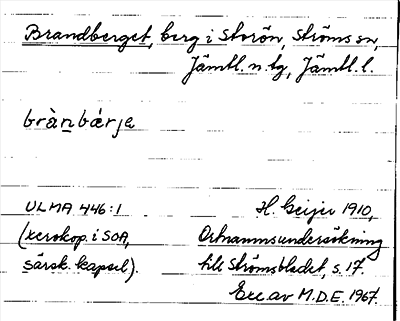 Brandberget, berg i Storön, Ströms sn,
Jämtl. n. tg, Jämtl. l.
bràn bǽrjạ
ULMA 446:1 H. Geijer 1910,
(xerokop. i SOA, Ortnamnsundersökning
särsk. kapsel). till Strömsbladet, s. 17.
Exc. av M.D.E. 1967.